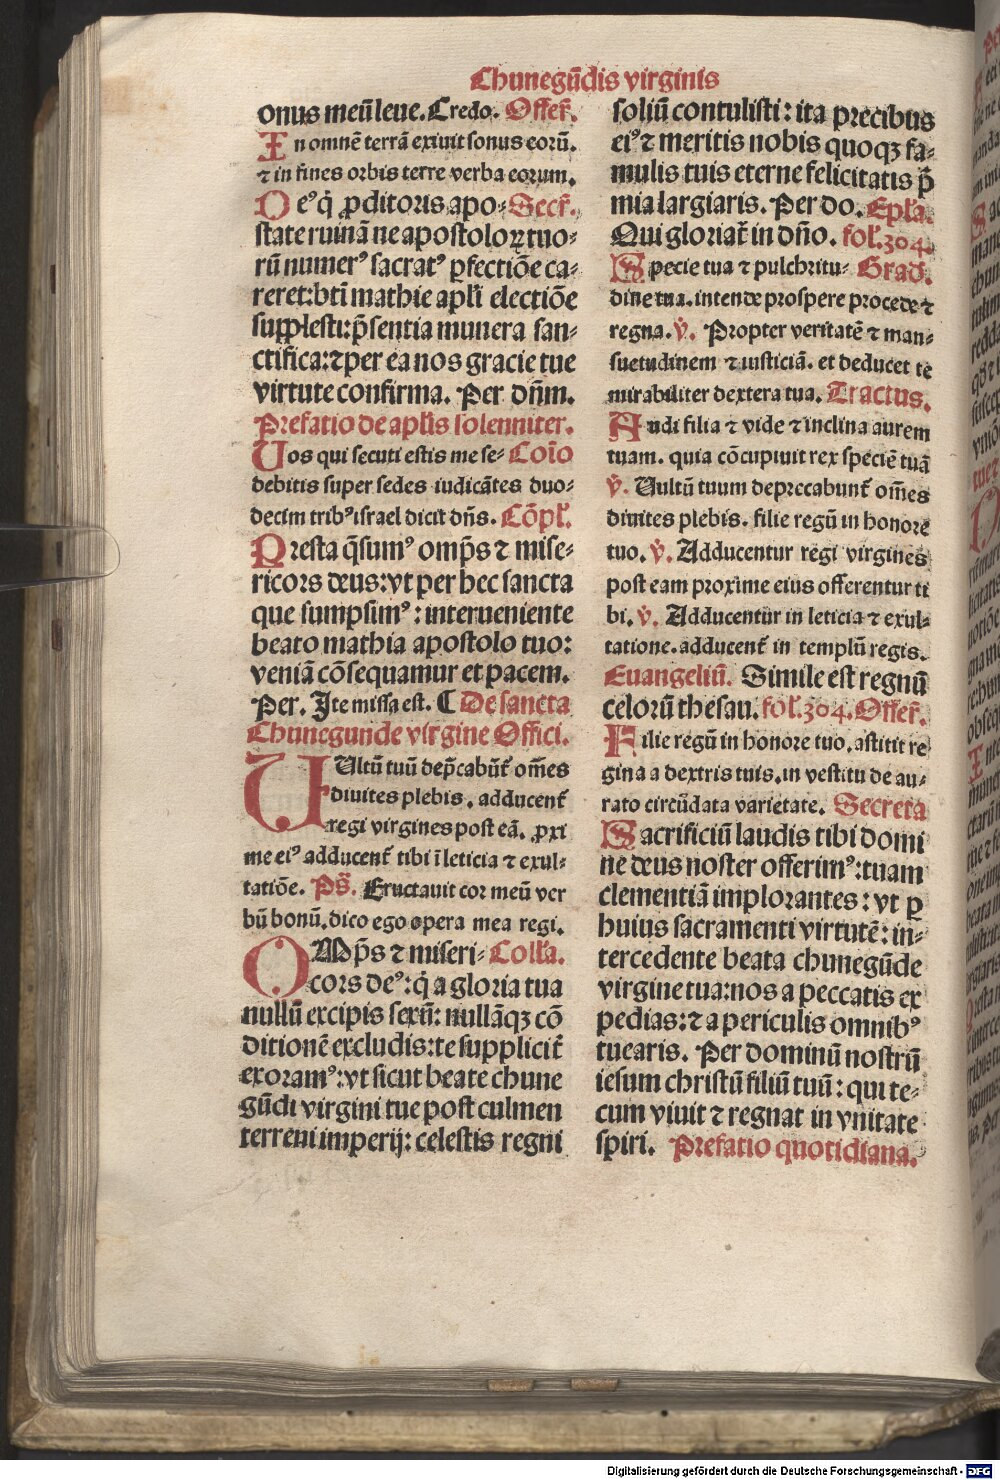 Chunegūdis virginis
onus meū leue. Credo. Offer̄.
In omnē terrā exiuit sonus eorū.
⁊ in fines orbis terre verba eorum.
Deꝰ q̇ ꝓditoris apo⸗ Secr̄.
state ruinā ne apostoloꝝ tuo⸗
rū numerꝰ sacratꝰ ꝑfectiōe ca⸗
reret: bti̅ mathie apli̅ electiōe
supplesti: p̄sentia munera san⸗
ctifica: ⁊ per ea nos gracie tue
virtute confirma. Per dn̄m.
Prefatio de apl̄is solenniter.
Uos qui secuti estis me se⸗ Cōio
debitis super sedes iudicātes duo⸗
decim tribꝰ israel dicit dn̄s. Cōpl̄.
Presta q̄sumꝰ omp̄s ⁊ mise⸗
ricors deus: vt per hec sancta
que sumpsimꝰ: interueniente
beato mathia apostolo tuo:
veniā cōsequamur et pacem.
Per. Ite missa est. ⸿ De sancta
Chunegunde virgine Offici.
Ultū tuū dep̄cabūt̄ om̄es
diuites plebis. adducent̄
regi virgines post eā. ꝓxi
me eiꝰ adducent̄ tibi ī leticia ⁊ exul⸗
tatiōe. Ps̄. Eructauit cor meū ver
bū bonū. dico ego opera mea regi.
OMp̄s ⁊ miseri⸗ Coll̄a.
cors deꝰ: q̇ a gloria tua
nullū excipis sexū: nullāqꝫ cō
ditionē excludis: te supplicit̄
exoramꝰ: vt sicut beate chune
gūdi virgini tue post culmen
terreni imperij: celestis regni
soliū contulisti: ita precibus
eiꝰ ⁊ meritis nobis quoqꝫ fa⸗
mulis tuis eterne felicitatis p̄
mia largiaris. Per do. Epl̄a.
Qui gloriat̄ in dn̄o. fol̄. 304.
Specie tua ⁊ pulchritu⸗ Grad.
dine tua. intende prospere procede ⁊
regna. v̄. Propter veritatē ⁊ man⸗
suetudinem ⁊ iusticiā. et deducet te
mirabiliter dextera tua. Tractus.
Audi filia ⁊ vide ⁊ inclina aurem
tuam. quia cōcupiuit rex speciē tuā
v̄. Uultū tuum deprecabunt̄ om̄es
diuites plebis. filie regū in honore
tuo. v̄. Adducentur regi virgines
post eam proxime eius offerentur ti
bi. v̄. Adducentur in leticia ⁊ exul⸗
tatione. adducent̄ in templū regis.
Euangeliū. Simile est regnū
celorū thesau. fol̄. 304. Offer̄.
Filie regū in honore tuo. astitit re
gina a dextris tuis. in vestitu de au⸗
rato circūdata varietate. Secreta
Sacrificiū laudis tibi domi
ne deus noster offerimꝰ: tuam
clementiā implorantes: vt ꝑ
huius sacramenti virtutē: in⸗
tercedente beata chunegūde
virgine tua: nos a peccatis ex
pedias: ⁊ a periculis omnibꝰ
tuearis. Per dominū nostrū
iesum christū filiū tuū: qui te⸗
cum viuit ⁊ regnat in vnitate
spiri. Prefatio quotidiana.
Digitalisierung gefördert durch die Deutsche Forschungsgemeinschaft - DFG